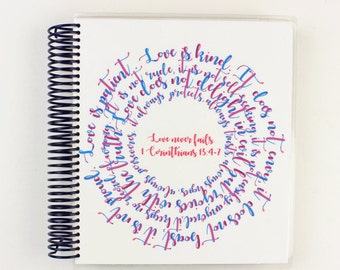 Love is patient. Love is kind. It does not envy, it does not boast, it is not proud.
it is not rude, it is not self seeking, it is not easily angered, it keeps no
Love does not delight in evil but rejoices with the truth.
Always protects, always trusts, always hopes, always perseveres.
Love never fails
1 Corinthians 13:4-7